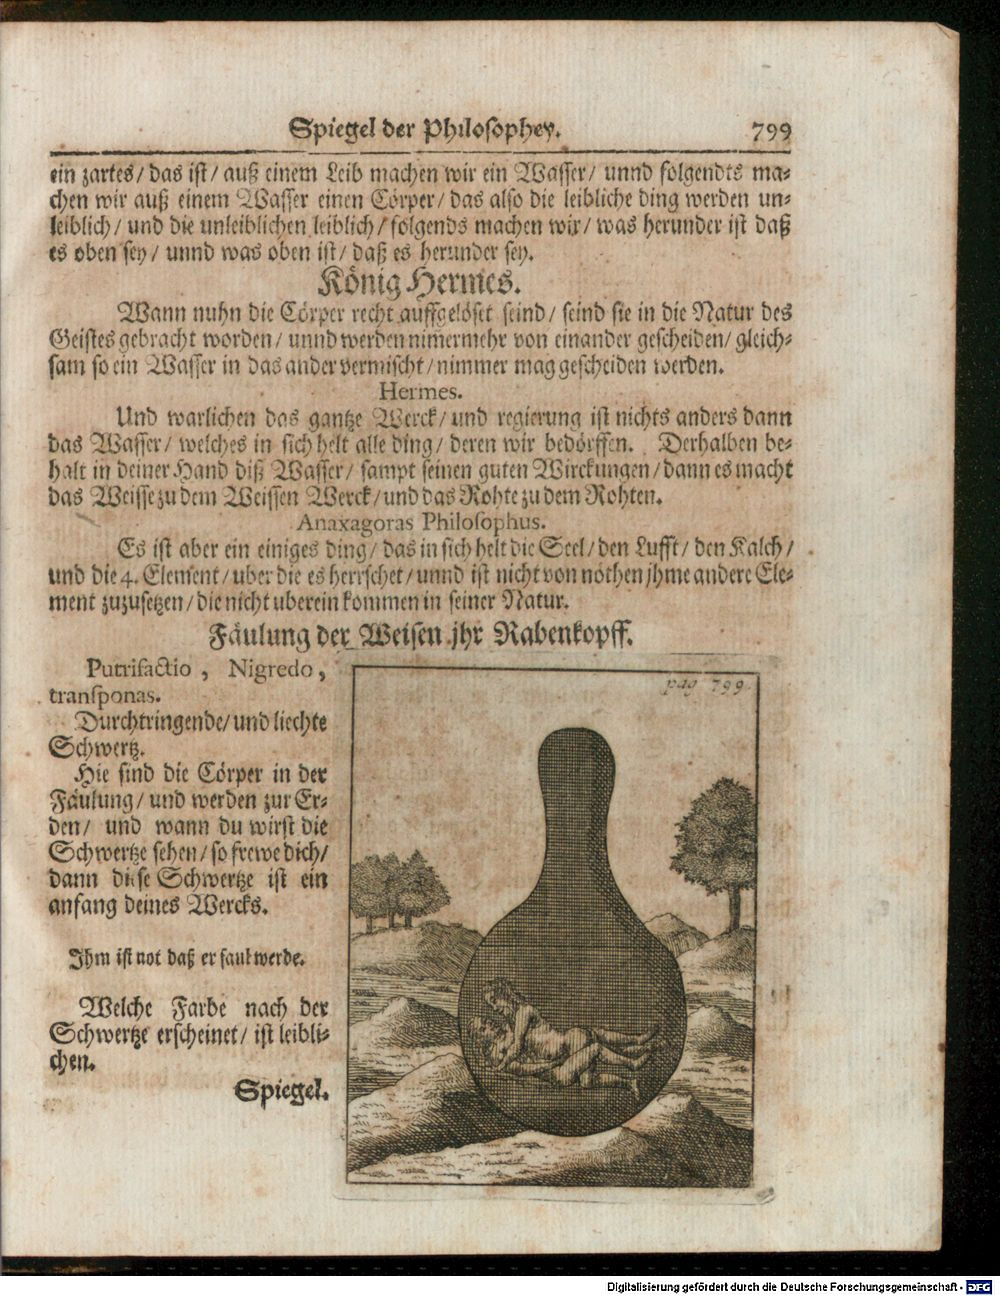 Spiegel der Philosophey. 799
ein zartes/ das ist/ auß einem Leib machen wir ein Wasser/ unnd folgendts ma-
chen wir auß einem Wasser einen Cörper/ das also die leibliche ding werden un-
leiblich/ und die unleiblichen leiblich/ folgends machen wir/ was herunder ist daß
es oben sey/ unnd was oben ist/ daß es herunder sey.
König Hermes.
Wann nuhn die Cörper recht auffgelöset seind/ seind sie in die Natur des
Geistes gebracht worden/ unnd werden nim̃ermehr von einander gescheiden/ gleich-
sam so ein Wasser in das ander vermischt/ nimmer mag gescheiden werden.
Hermes.
Und warlichen das gantze Werck/ und regierung ist nichts anders dann
das Wasser/ welches in sich helt alle ding/ deren wir bedörffen. Derhalben be-
halt in deiner Hand diß Wasser/ sampt seinen guten Wirckungen/ dann es macht
das Weisse zu dem Weissen Werck/ und das Rohte zu dem Rohten.
Anaxagoras Philosophus.
Es ist aber ein einiges ding/ das in sich helt die Seel/ den Lufft/ den Kalch/
und die 4. Element/ uber die es herrschet/ unnd ist nicht von nöthen jhme andere Ele-
ment zuzusetzen/ die nicht uberein kommen in seiner Natur.
Fäulung der Weisen jhr Rabenkopff.
Putrifactio, Nigredo,
transponas.
Durchtringende/ und liechte
Schwertz.
Hie sind die Cörper in der
Fäulung/ und werden zur Er-
den/ und wann du wirst die
Schwertze sehen/ so frewe dich/
dann diese Schwertze ist ein
anfang deines Wercks.
Ihm ist not daß er faul werde.
Welche Farbe nach der
Schwertze erscheinet/ ist leibli-
chen.
Spiegel.
pag 799.
Digitalisierung gefördert durch die Deutsche Forschungsgemeinschaft - DFG